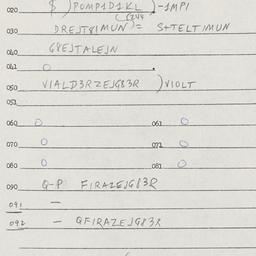 020 $ )POMP1D1KL )-1MPI
(R244
030 DREJT81MUN)= S+TELTIMUN
040 G8EJTALEJN
041 O
050 VIALD3RZEJG83R )VIOLT
051
060 O 061 O
070 O 071 O
080 O 081 O
090 Q-P FIRAZEJG83R
091 —
092 — QFIRAZEJG83R